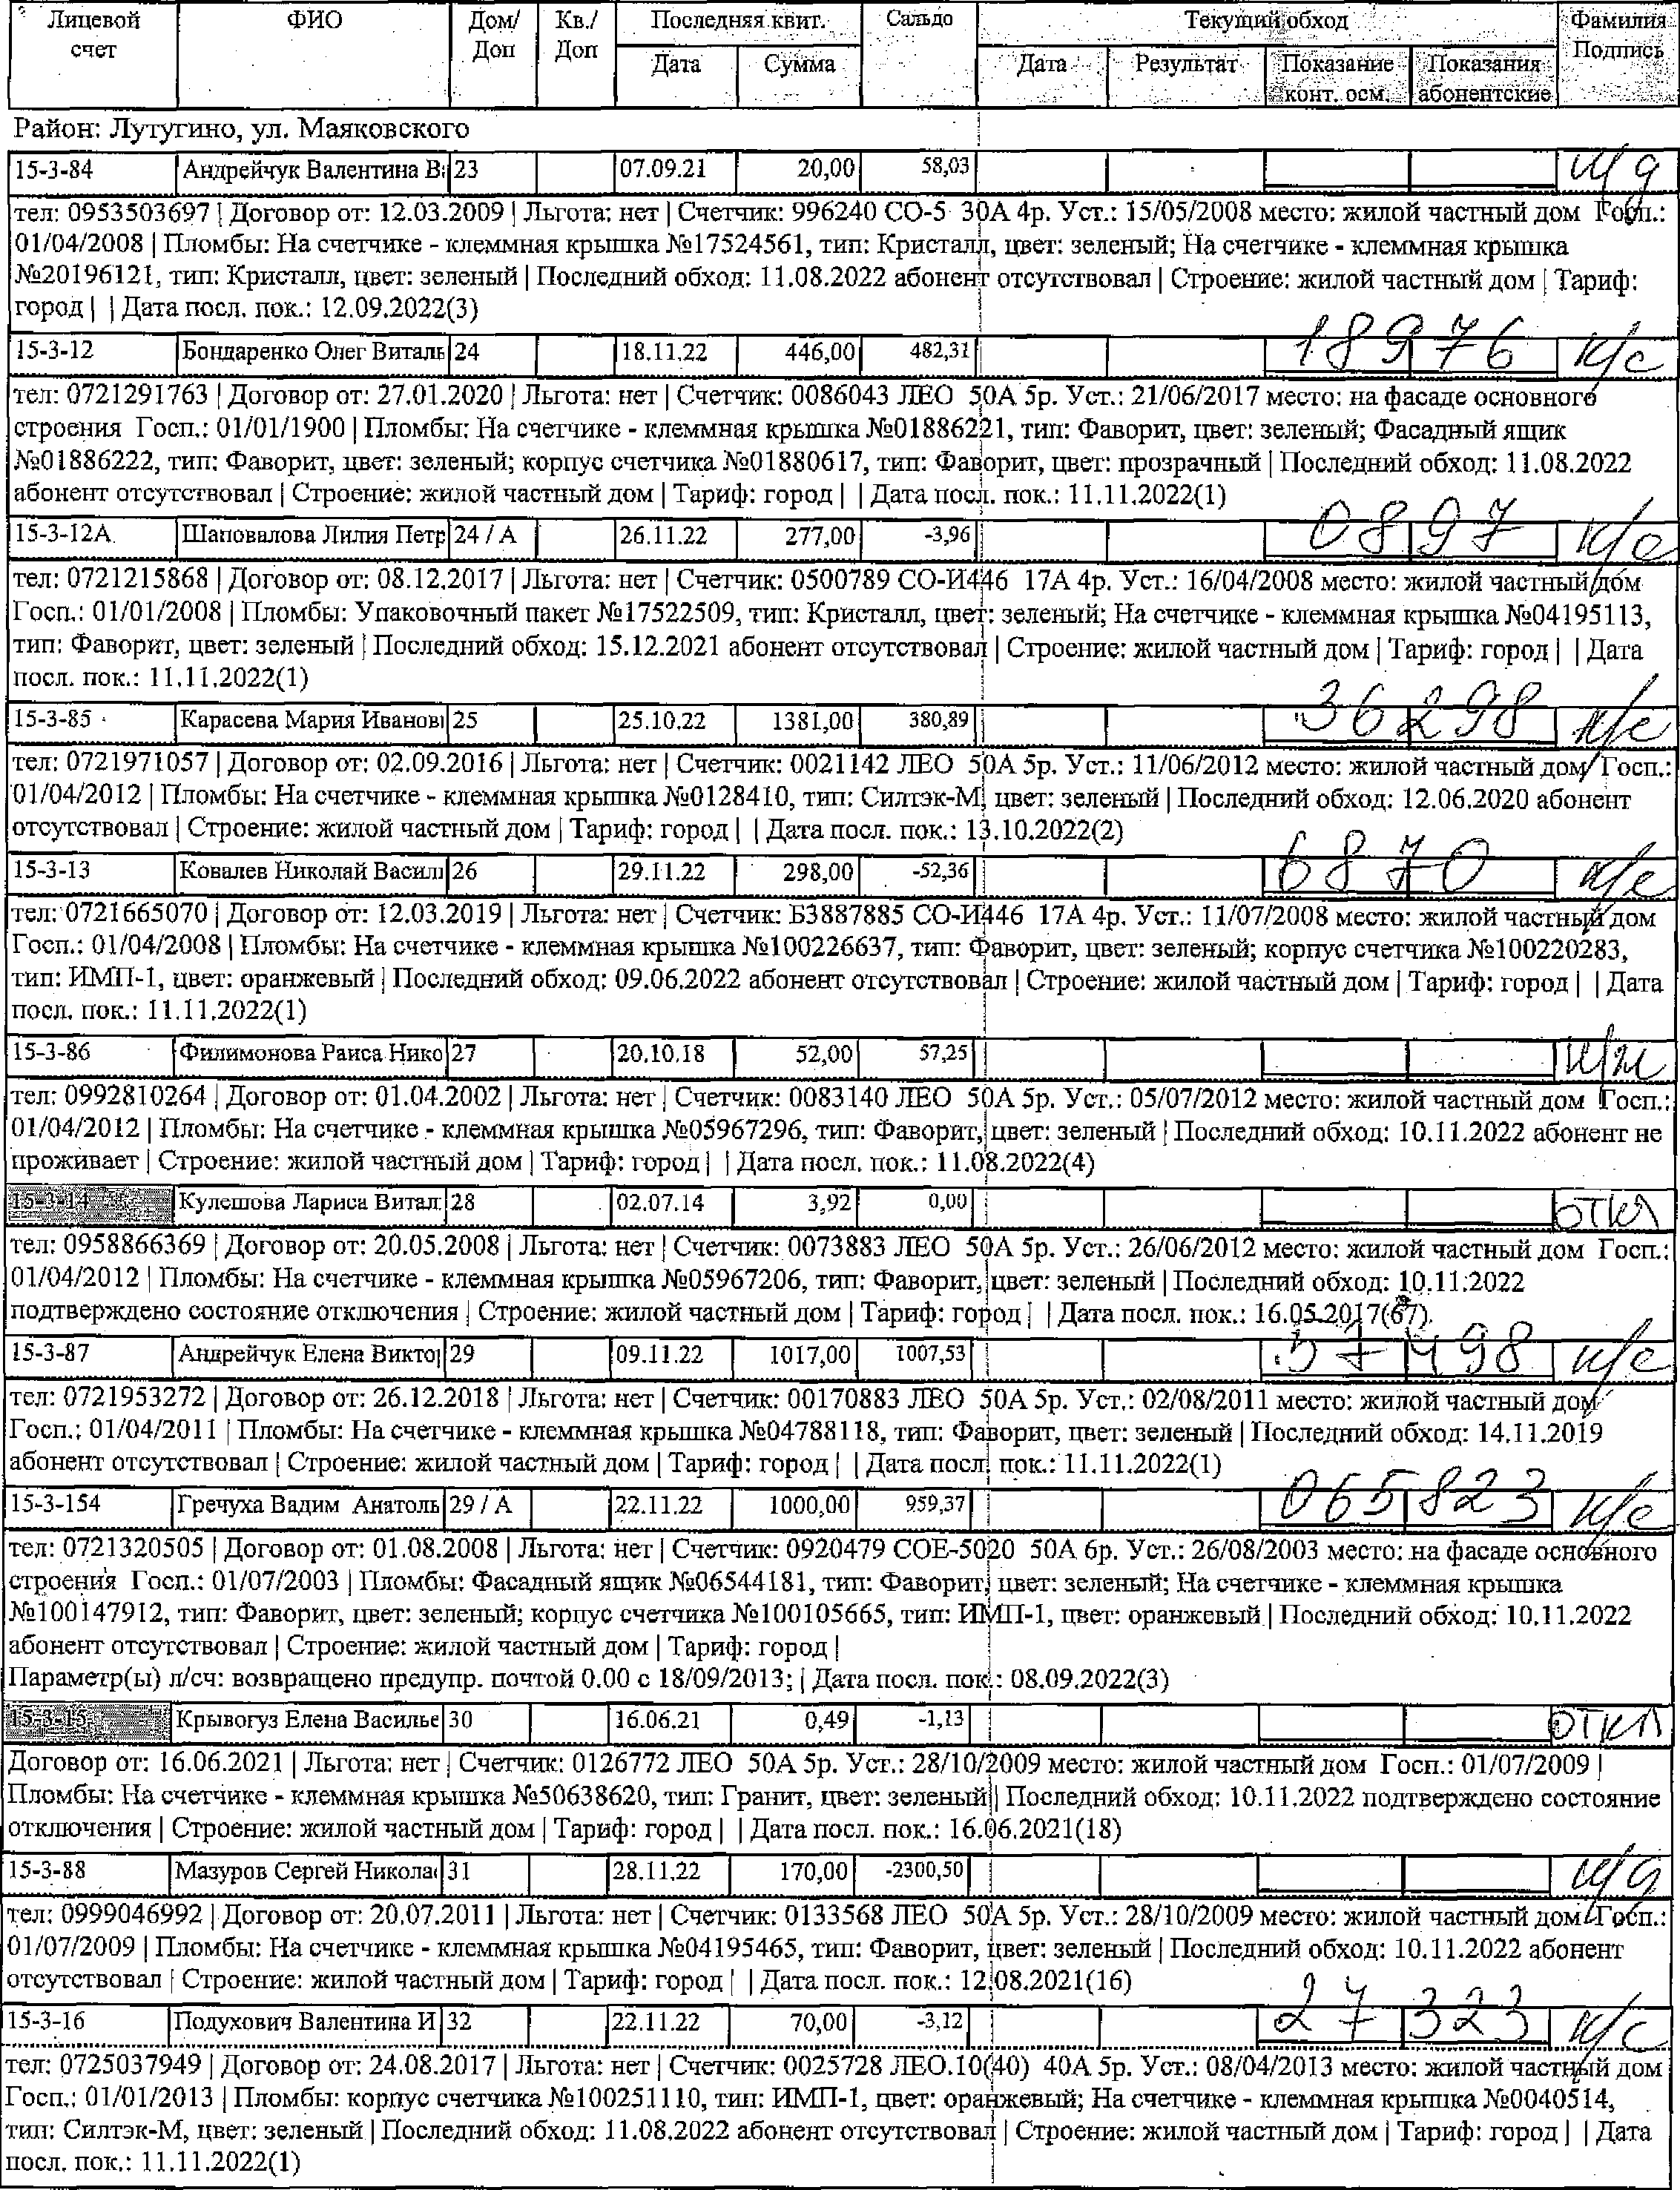 Лицевой счет ФИО Дом/Доп Кв./Доп Последняя квит. Сальдо Текущий обход Фамилия Подпись
Дата Сумма Дата Результат Показание конт. осм. Показания абонентские
Район: Лутугино, ул. Маяковского
15-3-84 Андрейчук Валентина В 23 07.09.21 20,00 58,03
тел: 0953503697 | Договор от: 12.03.2009 | Льгота: нет | Счетчик: 996240 СО-5 30А 4р. Уст.: 15/05/2008 место: жилой частный дом Госп.:
01/04/2008 | Пломбы: На счетчике - клеммная крышка №17524561, тип: Кристалл, цвет: зеленый; На счетчике - клеммная крышка
№20196121, тип: Кристалл, цвет: зеленый | Последний обход: 11.08.2022 абонент отсутствовал | Строение: жилой частный дом | Тариф:
город | | Дата посл. пок.: 12.09.2022(3)
15-3-12 Бондаренко Олег Виталь 24 18.11.22 446,00 482,31 18976 к/с
тел: 0721291763 | Договор от: 27.01.2020 | Льгота: нет | Счетчик: 0086043 ЛЕО 50А 5р. Уст.: 21/06/2017 место: на фасаде основного
строения Госп.: 01/01/1900 | Пломбы: На счетчике - клеммная крышка №01886221, тип: Фаворит, цвет: зеленый; Фасадный ящик
№01886222, тип: Фаворит, цвет: зеленый; корпус счетчика №01880617, тип: Фаворит, цвет: прозрачный | Последний обход: 11.08.2022
абонент отсутствовал | Строение: жилой частный дом | Тариф: город | | Дата посл. пок.: 11.11.2022(1)
15-3-12А Шаповалова Лилия Петр 24 / А 26.11.22 277,00 -3,96 0897 к/с
тел: 0721215868 | Договор от: 08.12.2017 | Льгота: нет | Счетчик: 0500789 СО-И446 17А 4р. Уст.: 16/04/2008 место: жилой частный дом
Госп.: 01/01/2008 | Пломбы: Упаковочный пакет №17522509, тип: Кристалл, цвет: зеленый; На счетчике - клеммная крышка №04195113,
тип: Фаворит, цвет: зеленый | Последний обход: 15.12.2021 абонент отсутствовал | Строение: жилой частный дом | Тариф: город | | Дата
посл. пок.: 11.11.2022(1)
15-3-85 Карасева Мария Иванов 25 25.10.22 1381,00 380,89 36298 к/с
тел: 0721971057 | Договор от: 02.09.2016 | Льгота: нет | Счетчик: 0021142 ЛЕО 50А 5р. Уст.: 11/06/2012 место: жилой частный дом Госп.:
01/04/2012 | Пломбы: На счетчике - клеммная крышка №0128410, тип: Силтэк-М, цвет: зеленый | Последний обход: 12.06.2020 абонент
отсутствовал | Строение: жилой частный дом | Тариф: город | | Дата посл. пок.: 13.10.2022(2)
15-3-13 Ковалев Николай Васил 26 29.11.22 298,00 -52,36 6870 к/с
тел: 0721665070 | Договор от: 12.03.2019 | Льгота: нет | Счетчик: Б3887885 СО-И446 17А 4р. Уст.: 11/07/2008 место: жилой частный дом
Госп.: 01/04/2008 | Пломбы: На счетчике - клеммная крышка №100226637, тип: Фаворит, цвет: зеленый; корпус счетчика №100220283,
тип: ИМП-1, цвет: оранжевый | Последний обход: 09.06.2022 абонент отсутствовал | Строение: жилой частный дом | Тариф: город | | Дата
посл. пок.: 11.11.2022(1)
15-3-86 Филимонова Раиса Нико 27 20.10.18 52,00 57,25
тел: 0992810264 | Договор от: 01.04.2002 | Льгота: нет | Счетчик: 0083140 ЛЕО 50А 5р. Уст.: 05/07/2012 место: жилой частный дом Госп.:
01/04/2012 | Пломбы: На счетчике - клеммная крышка №05967296, тип: Фаворит, цвет: зеленый | Последний обход: 10.11.2022 абонент не
проживает | Строение: жилой частный дом | Тариф: город | | Дата посл. пок.: 11.08.2022(4)
15-3-14 Кулешова Лариса Витал 28 02.07.14 3,92 0,00 откл
тел: 0958866369 | Договор от: 20.05.2008 | Льгота: нет | Счетчик: 0073883 ЛЕО 50А 5р. Уст.: 26/06/2012 место: жилой частный дом Госп.:
01/04/2012 | Пломбы: На счетчике - клеммная крышка №05967206, тип: Фаворит, цвет: зеленый | Последний обход: 10.11.2022
подтверждено состояние отключения | Строение: жилой частный дом | Тариф: город | | Дата посл. пок.: 16.05.2017(67)
15-3-87 Андрейчук Елена Викто 29 09.11.22 1017,00 1007,53 57498 к/с
тел: 0721953272 | Договор от: 26.12.2018 | Льгота: нет | Счетчик: 00170883 ЛЕО 50А 5р. Уст.: 02/08/2011 место: жилой частный дом
Госп.: 01/04/2011 | Пломбы: На счетчике - клеммная крышка №04788118, тип: Фаворит, цвет: зеленый | Последний обход: 14.11.2019
абонент отсутствовал | Строение: жилой частный дом | Тариф: город | | Дата посл. пок.: 11.11.2022(1)
15-3-154 Гречуха Вадим Анатоль 29 / А 22.11.22 1000,00 959,37 065823 к/с
тел: 0721320505 | Договор от: 01.08.2008 | Льгота: нет | Счетчик: 0920479 СОЕ-5020 50А 6р. Уст.: 26/08/2003 место: на фасаде основного
строения Госп.: 01/07/2003 | Пломбы: Фасадный ящик №06544181, тип: Фаворит, цвет: зеленый; На счетчике - клеммная крышка
№100147912, тип: Фаворит, цвет: зеленый; корпус счетчика №100105665, тип: ИМП-1, цвет: оранжевый | Последний обход: 10.11.2022
абонент отсутствовал | Строение: жилой частный дом | Тариф: город |
Параметр(ы) л/сч: возвращено предупр. почтой 0.00 с 18/09/2013; | Дата посл. пок.: 08.09.2022(3)
15-3-15 Крывогуз Елена Василье 30 16.06.21 0,49 -1,13 откл
Договор от: 16.06.2021 | Льгота: нет | Счетчик: 0126772 ЛЕО 50А 5р. Уст.: 28/10/2009 место: жилой частный дом Госп.: 01/07/2009 |
Пломбы: На счетчике - клеммная крышка №50638620, тип: Гранит, цвет: зеленый | Последний обход: 10.11.2022 подтверждено состояние
отключения | Строение: жилой частный дом | Тариф: город | | Дата посл. пок.: 16.06.2021(18)
15-3-88 Мазуров Сергей Никола 31 28.11.22 170,00 -2300,50
тел: 0999046992 | Договор от: 20.07.2011 | Льгота: нет | Счетчик: 0133568 ЛЕО 50А 5р. Уст.: 28/10/2009 место: жилой частный дом Госп.:
01/07/2009 | Пломбы: На счетчике - клеммная крышка №04195465, тип: Фаворит, цвет: зеленый | Последний обход: 10.11.2022 абонент
отсутствовал | Строение: жилой частный дом | Тариф: город | | Дата посл. пок.: 12.08.2021(16)
15-3-16 Подухович Валентина И 32 22.11.22 70,00 -3,12 27323 к/с
тел: 0725037949 | Договор от: 24.08.2017 | Льгота: нет | Счетчик: 0025728 ЛЕО.10(40) 40А 5р. Уст.: 08/04/2013 место: жилой частный дом
Госп.: 01/01/2013 | Пломбы: корпус счетчика №100251110, тип: ИМП-1, цвет: оранжевый; На счетчике - клеммная крышка №0040514,
тип: Силтэк-М, цвет: зеленый | Последний обход: 11.08.2022 абонент отсутствовал | Строение: жилой частный дом | Тариф: город | | Дата
посл. пок.: 11.11.2022(1)